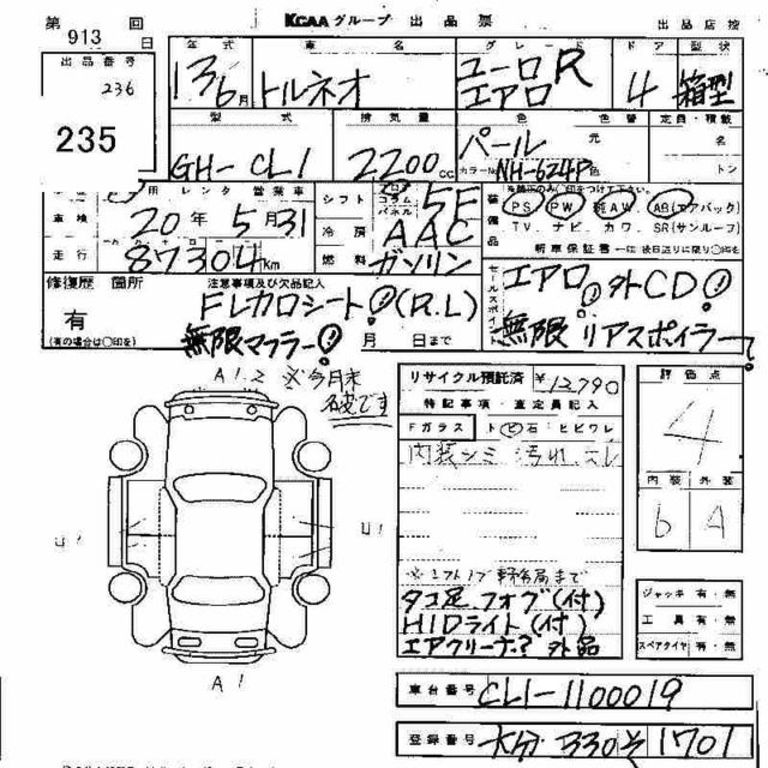 第 913 回 日
KCAAグループ 出品票
出品店控
出品番号
236
235
年式 車名 グレード ドア 形状
13 6月 トルネオ ユーロR エアロ 4 箱型
型式 排気量 色 元色 色替 定員・積載
GH-CL1 2200cc パール カラーNo. NH-624P 名 トン
用 レンタ 営業車
車検 20年5月31
走行 87304km
シフト フロア コラム パネル 5F
冷房 AAC
燃料 ガソリン
装備品
PS PW AW AB(エアバック)
TV ナビ カワ SR(サンルーフ)
新車保証書
修復歴 箇所
有
(有の場合は○印を)
注意事項及び欠品記入
FLカロシート!(R.L)
無限マフラー!
月 日まで
セールスポイント
エアロ! 外CD!
無限 リアスポイラー
A1.2 ※今月末
U1
U1
A1
リサイクル預託済 ¥12,790
特記事項・査定員記入
Fガラス トビ石 ヒビワレ
内装シミ 汚れ スレ
タコ足 フォブ(付)
HIDライト(付)
エアクリーナ? 外品
評価点
4
内装 外装
b A
ジャッキ 有・無
工具 有・無
スペアタイヤ 有・無
車台番号 CL1-1100019
登録番号 大分 330 そ 1701